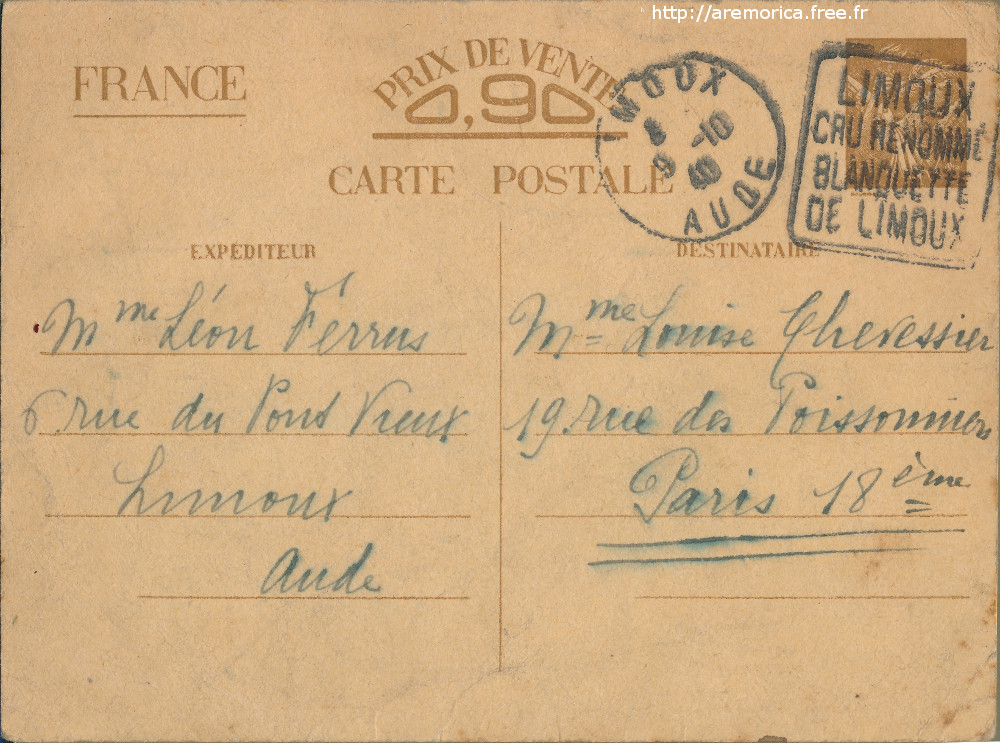 http://aremorica.free.fr
FRANCE
PRIX DE VENTE
0,90
CARTE POSTALE
LIMOUX
8 -10
9 40
AUDE
LIMOUX
CRU RENOMMÉ
BLANQUETTE
DE LIMOUX
EXPÉDITEUR
Mme Léon Férrus
6 rue du Pont Vieux
Limoux
Aude
DESTINATAIRE
Mme Louise Chevessier
19 rue des Poissonniers
Paris 18ème